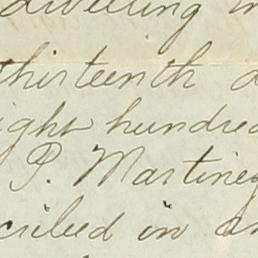 dwelling in
thirteenth d
ight hundred
P. Martinez
cribed in an